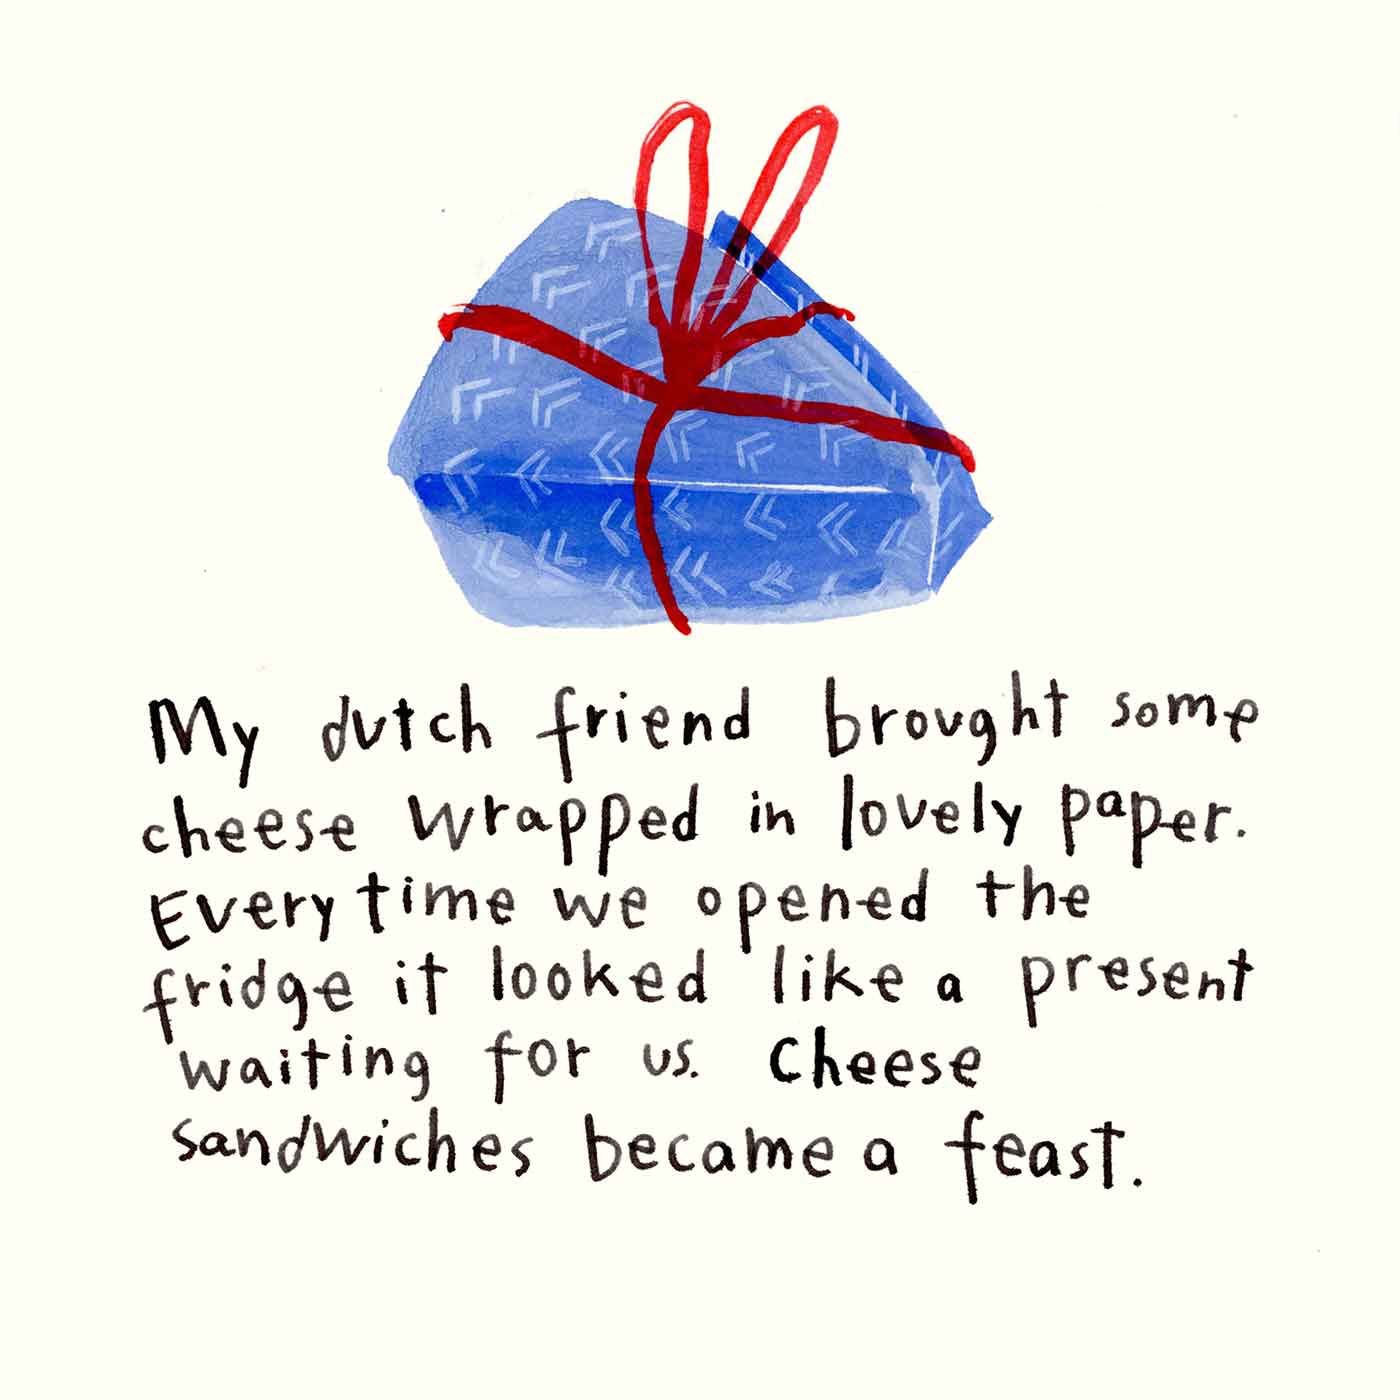 My dutch friend brought some
cheese wrapped in lovely paper.
Every time we opened the
fridge it looked like a present
waiting for us. Cheese
sandwiches became a feast.